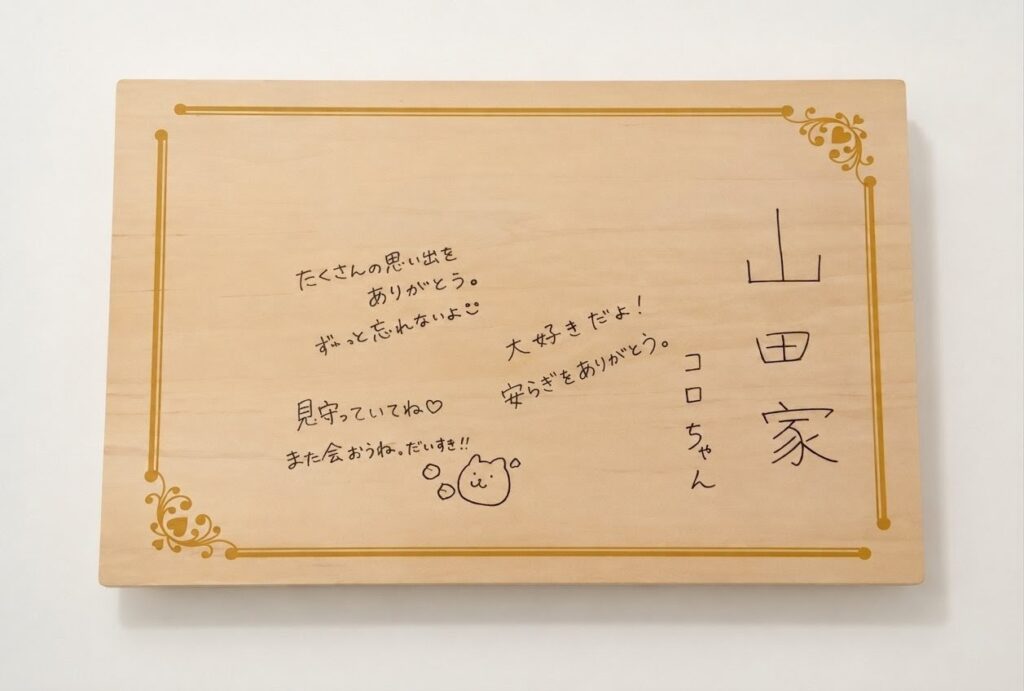 山田家
コロちゃん
大好きだよ!
安らぎをありがとう。
たくさんの思い出を
ありがとう。
ずっと忘れないよ
見守っていてね♡
また会おうね。だいすき!!